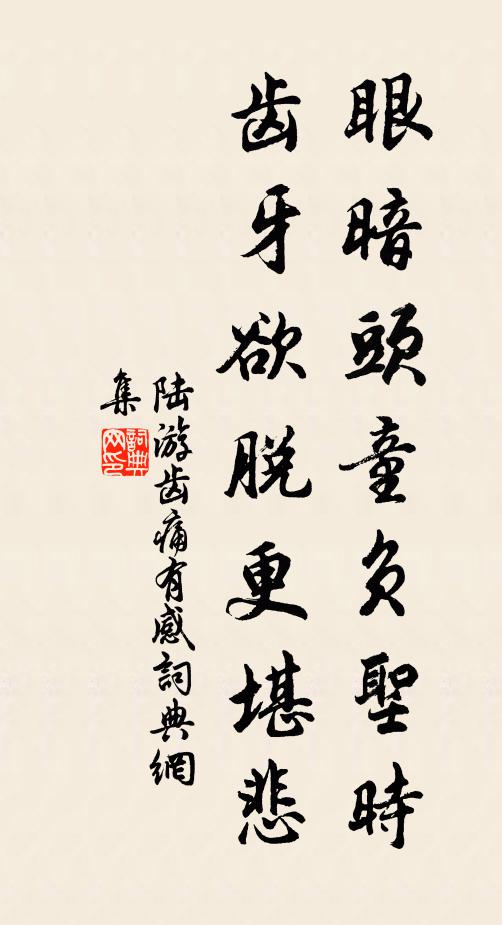 眼暗頭童負聖時
齿牙欲脫更堪悲
陆游齿痛有感詞典網
集
詞典网印